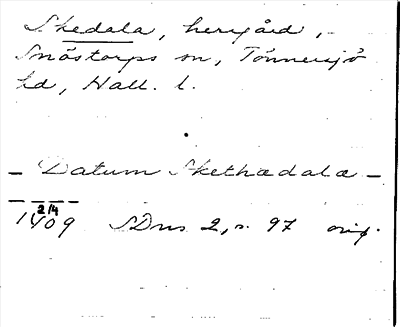 Skedala, herrgård,
Snöstorps sn, Tönnersjö
hd, Hall. l.
_ Datum Skethædalæ _
2/4
1409 SDns 2, s. 97 orig.